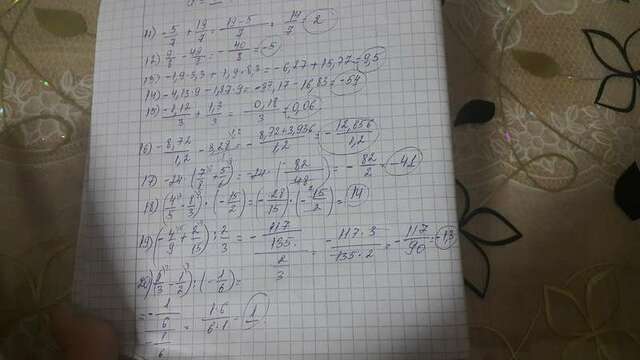 11) -5/7 + 19/7 = 19-5/7 = 14/7 = 2
12) 9/8 - 49/8 = -40/8 = -5
13) -1,9·3,3 + 1,9·8,3 = -6,27 + 15,77 = 9,5
14) -4,13·9 - 1,87·9 = -37,17 - 16,83 = -54
15) -1,12/3 + 1,3/3 = 0,18/3 = 0,06
16) -8,72/1,2 - 3,28 = -8,72+3,936/1,2 = -12,656/1,2
17) -24·(7/8 - 5/6) = -24·(-82/48) = -82/2 = -41
18) (4/5 - 8/3) : (-15/2) = (-28/15)·(-15/2) = 14
19) (-4/9 + 8/15) : 2/3 = -117/135 / 2/3 = -117·3/135·2 = -117/90 = -13
20) (1/3 - 1/2) : (-1/6) =
= -1/6 / -1/6 = 1·6/6·1 = 1